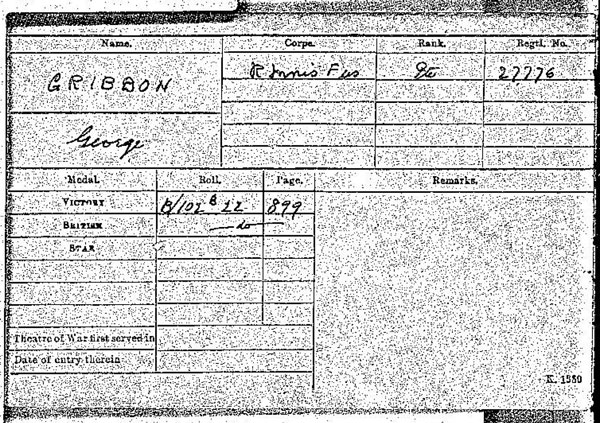 Name. Corps. Rank. Regtl. No.
GRIBBON R Innis Fus Pte 27776
George
Medal. Roll. Page. Remarks.
VICTORY B/102 B 22 899
BRITISH —do—
STAR
Theatre of War first served in
Date of entry therein
K. 1380